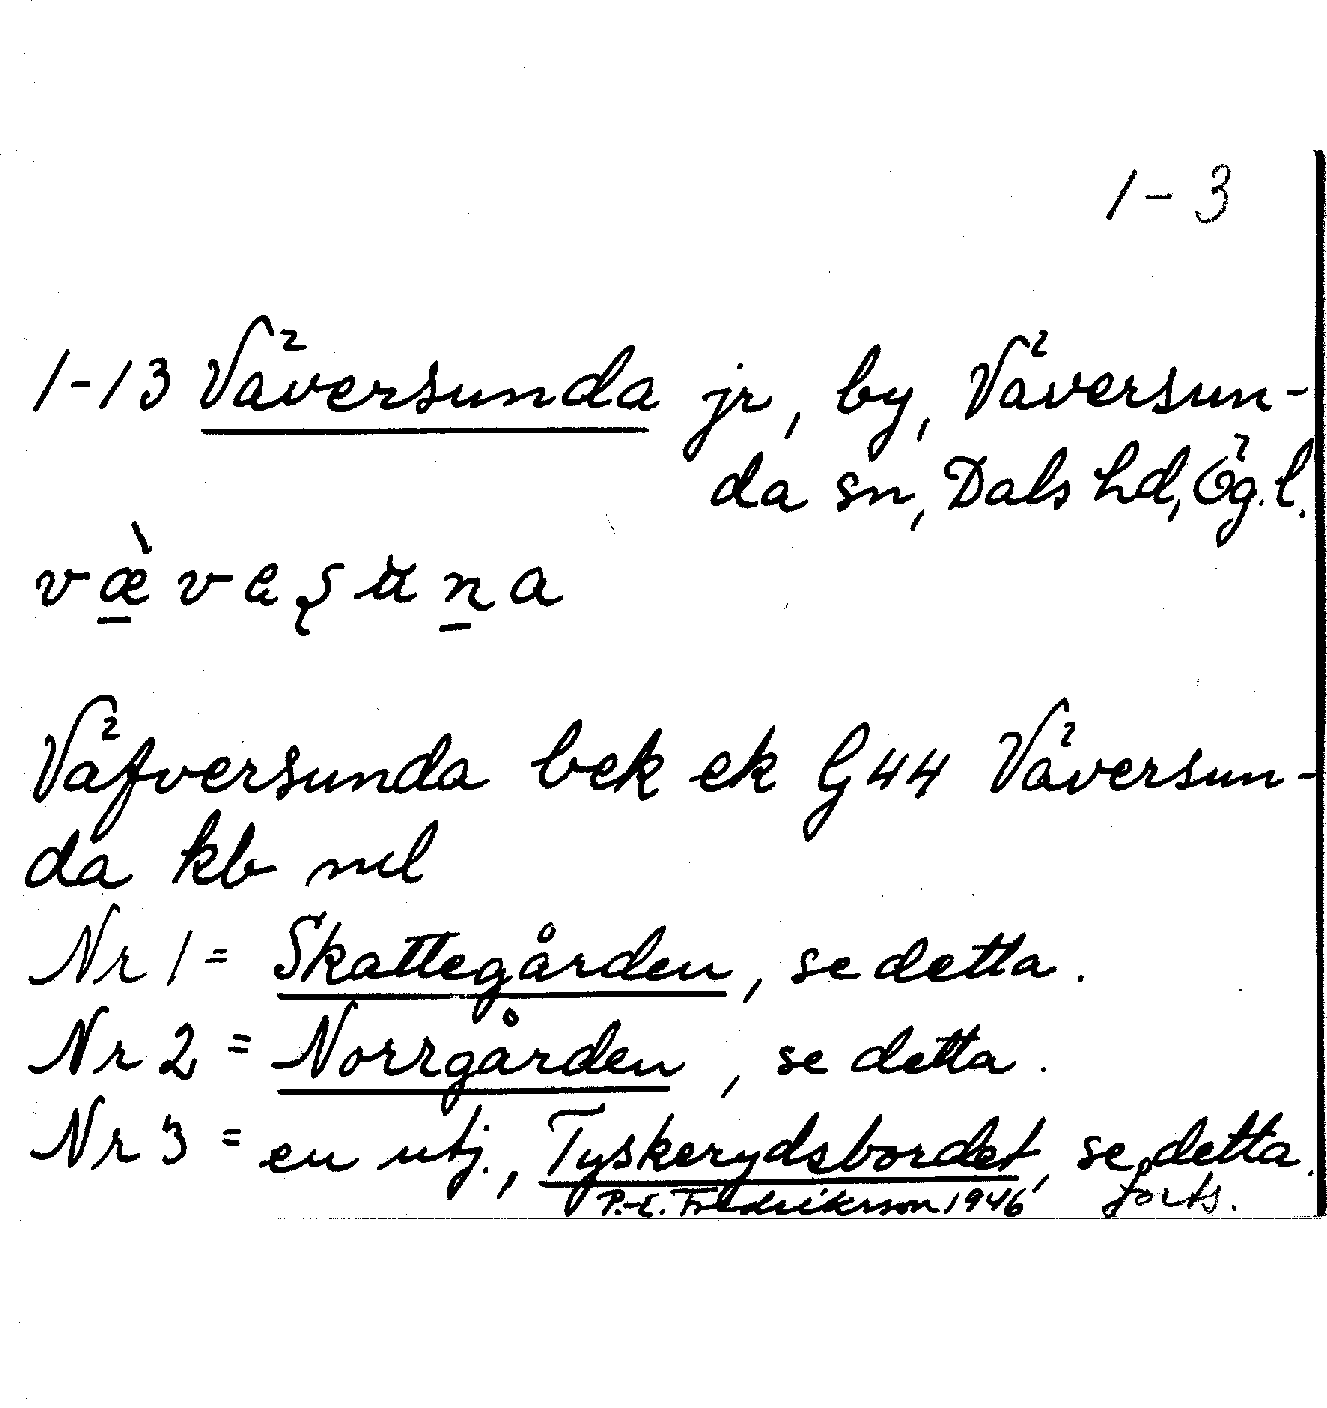 1-3
1-13 Väversunda jr, by, Väversun-
da sn, Dals hd, Ög. l.
Väfversunda bek ek G44 Väversun-
da kb ml
Nr 1 = Skattegården, se detta.
Nr 2 = Norrgården, se detta.
Nr 3 = en utj., Tyskerydsbordet, se detta.
P.-E. Fredriksson 1946 forts.